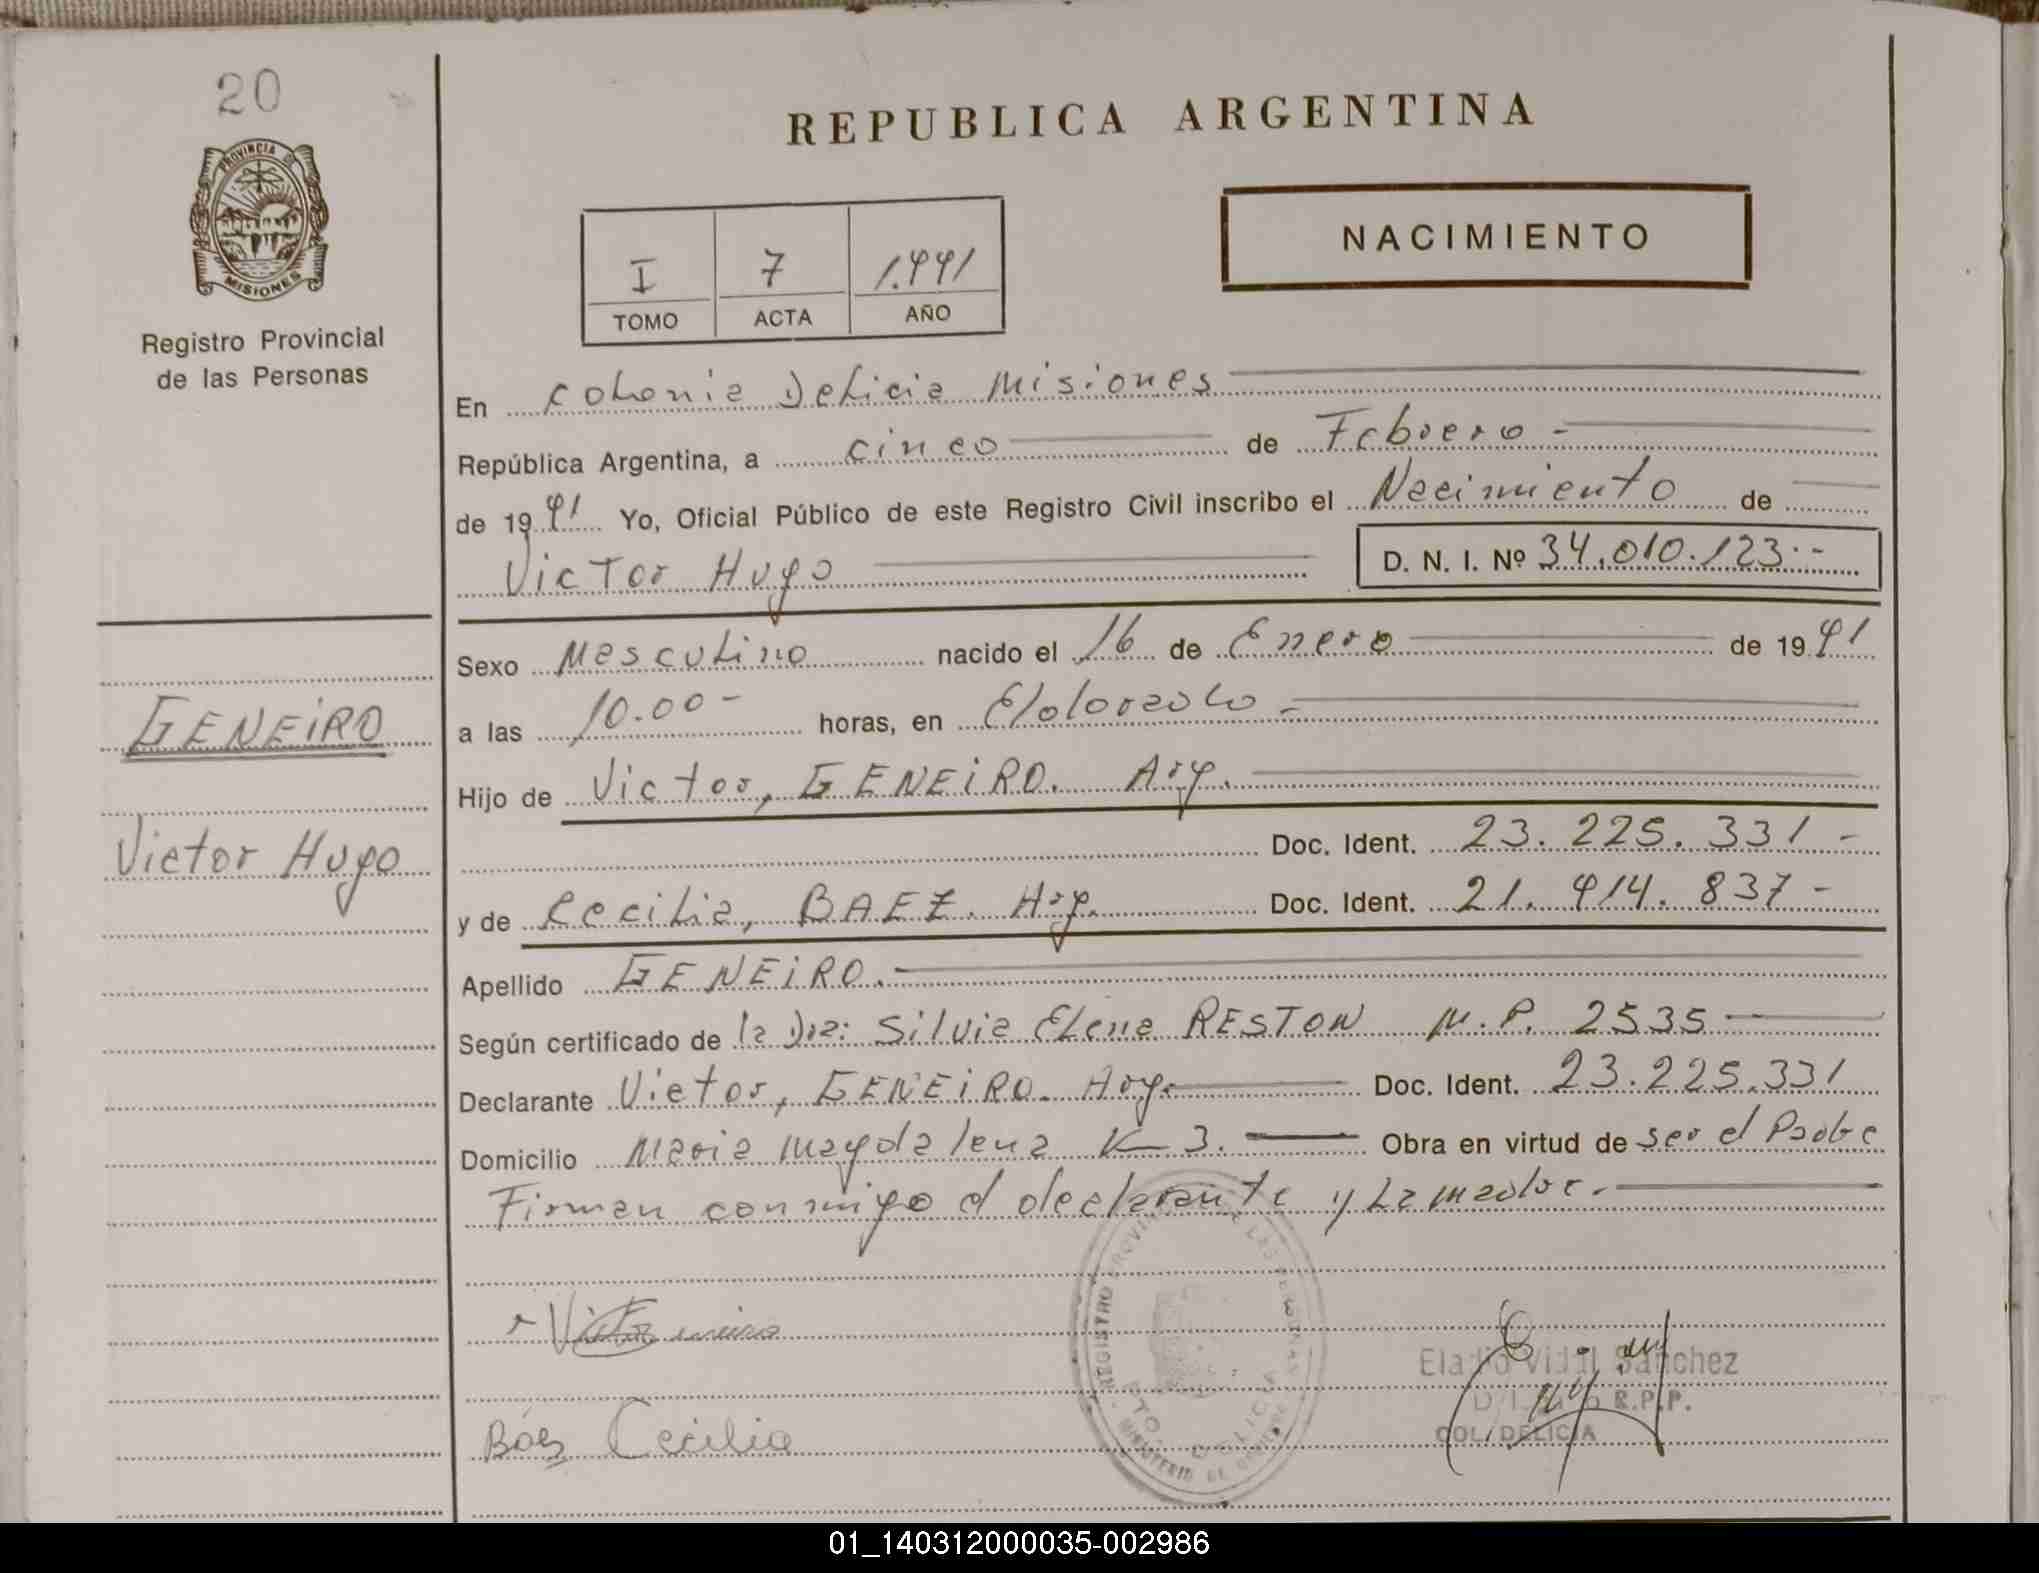 20
PROVINCIA DE
MISIONES
Registro Provincial
de las Personas
REPUBLICA ARGENTINA
NACIMIENTO
I 7 1.991
TOMO ACTA AÑO
En Colonia Delicia Misiones
República Argentina, a cinco de Febrero -
de 1991 Yo, Oficial Público de este Registro Civil inscribo el Nacimiento de
Victor Hugo D. N. I. Nº 34.010.123.-
Sexo Masculino nacido el 16 de Enero de 1991
a las 10.00- horas, en Eldorado -
GENEIRO
Hijo de Victor, GENEIRO. Arg.
Doc. Ident. 23.225.331-
Victor Hugo
y de Cecilia, BAEZ. Arg. Doc. Ident. 21.914.837-
Apellido GENEIRO.-
Según certificado de la Dra: Silvia Elena RESTON M.P. 2535
Declarante Victor, GENEIRO. Arg. Doc. Ident. 23.225.331
Domicilio Maria Magdalena K-3. Obra en virtud de ser el Padre
Firman conmigo el declarante y La madre.
REGISTRO PROVINCIAL DE LAS PERSONAS
MINISTERIO DE GOBIERNO
DELICIA
Eladio Vidal Sanchez
R.P.P.
COL. DELICIA
Báez Cecilia
01_140312000035-002986